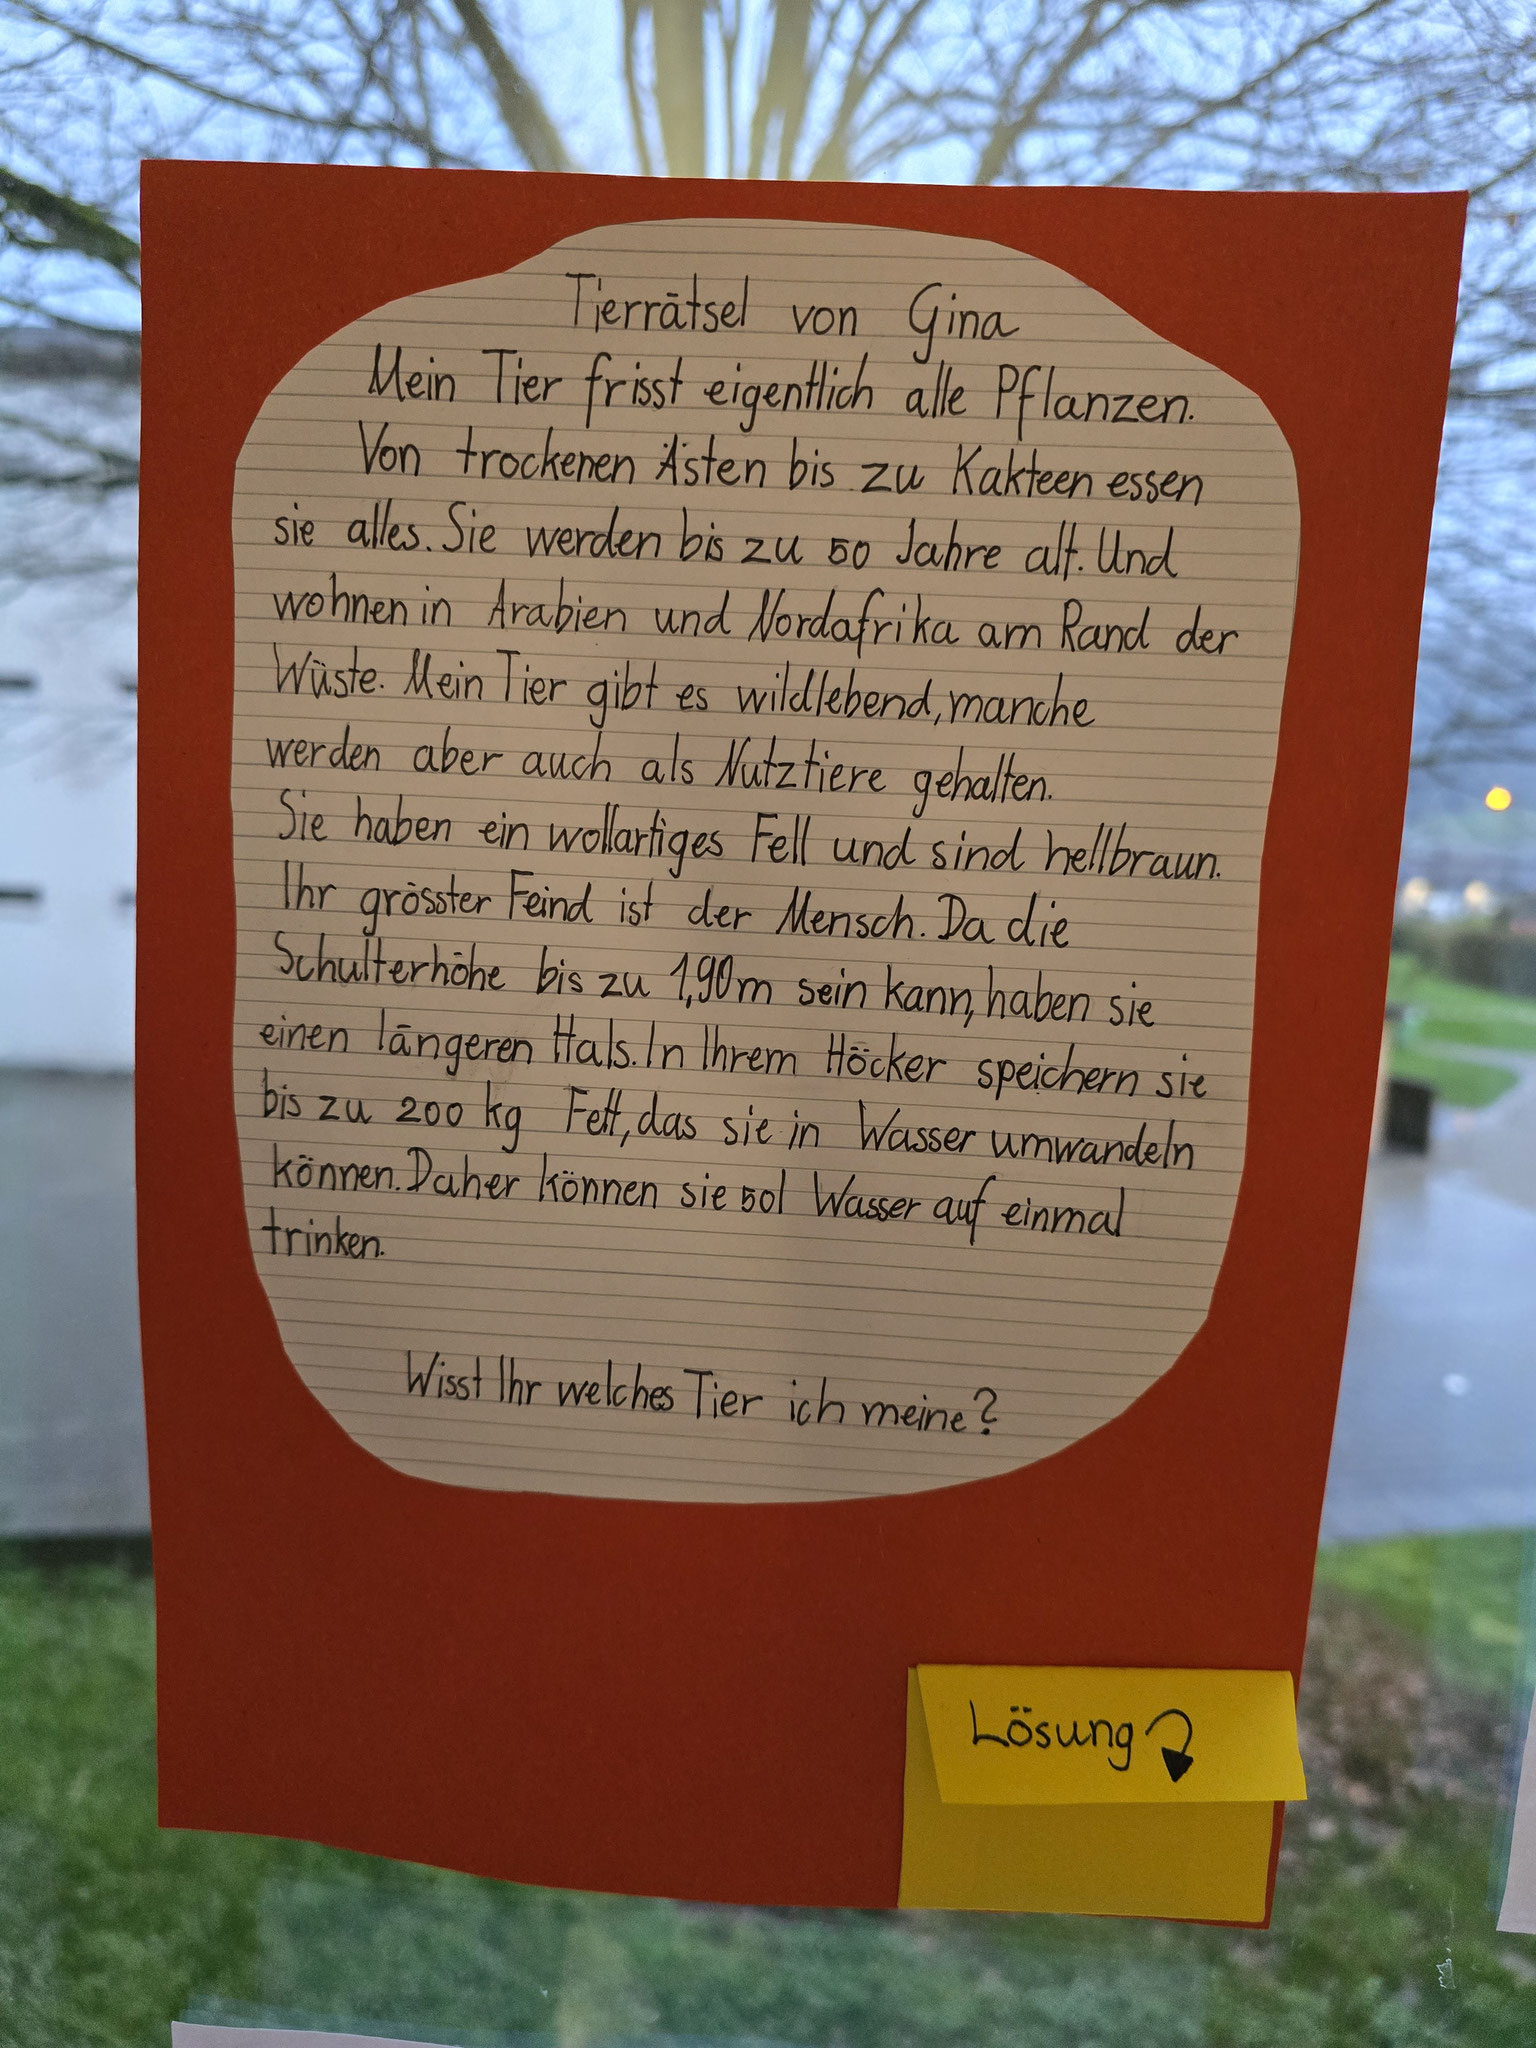 Tierrätsel von Gina
Mein Tier frisst eigentlich alle Pflanzen.
Von trockenen Ästen bis zu Kakteen essen
sie alles. Sie werden bis zu 50 Jahre alt. Und
wohnen in Arabien und Nordafrika am Rand der
Wüste. Mein Tier gibt es wildlebend, manche
werden aber auch als Nutztiere gehalten.
Sie haben ein wollartiges Fell und sind hellbraun.
Ihr grösster Feind ist der Mensch. Da die
Schulterhöhe bis zu 1,90m sein kann, haben sie
einen längeren Hals. In Ihrem Höcker speichern sie
bis zu 200 kg Fett, das sie in Wasser umwandeln
können. Daher können sie 50l Wasser auf einmal
trinken.
Wisst Ihr welches Tier ich meine?
Lösung